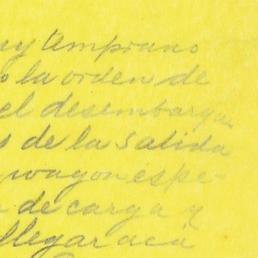 uy temprano
o la orden de
el desembarque
s de la salida
wagon espe-
de carga y
llegar acá